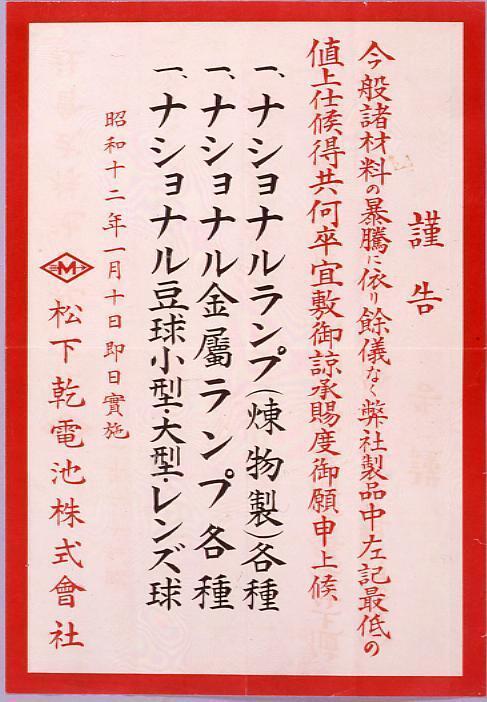 謹告
今般諸材料の暴騰に依り餘儀なく弊社製品中左記最低の
値上仕候得共何卒宜敷御諒承賜度御願申上候
一、ナショナルランプ(煉物製)各種
一、ナショナル金屬ランプ各種
一、ナショナル豆球小型・大型・レンズ球
昭和十二年一月十日即日實施
M
松下乾電池株式會社